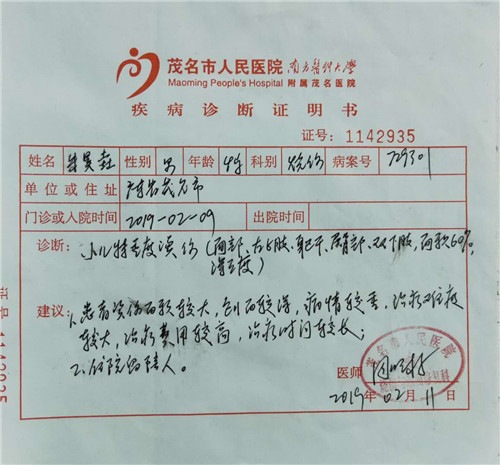 茂名市人民医院 南方医科大学
Maoming People's Hospital 附属茂名医院
疾病诊断证明书
证号：1142935
姓名 性别 男 年龄 科别 烧伤 病案号 729301
单位或住址 茂名市
门诊或入院时间 2019-02-09 出院时间
诊断：小儿特重度烫伤（面部、右上肢、躯干、臀部、双下肢，面积60%，
深Ⅱ度）
建议：1.患者烫伤面积较大，创面较深，病情较重，治疗难度
较大，治疗费用较高，治疗时间较长；
2.住院留陪人。
茂名市人民医院
医师
2019年02月11日
证号 1142935